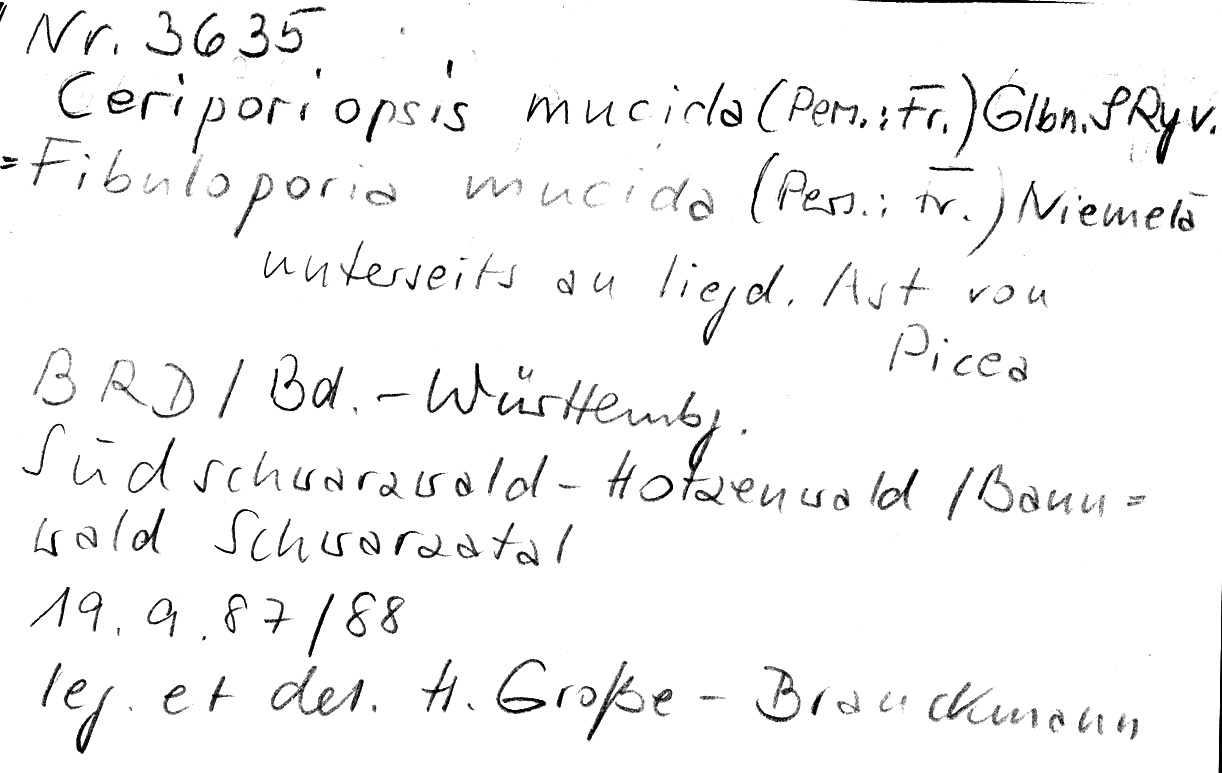 Nr. 3635
Ceriporiopsis mucida (Pers.: Fr.) Glbn. & Ryv.
= Fibuloporia mucida (Pers.: Fr.) Niemelä
unterseits an liegd. Ast von
Picea
BRD / Bd. - Württembg.
Südschwarzwald - Hotzenwald / Bann =
wald Schwarzatal
19. 9. 87/88
leg. et det. H. Große - Brauckmann